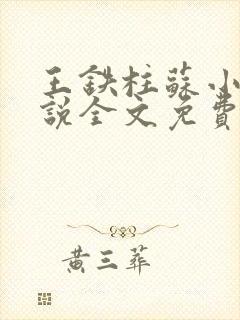 王鉄柱蘇小
説全文免費
黄三葬